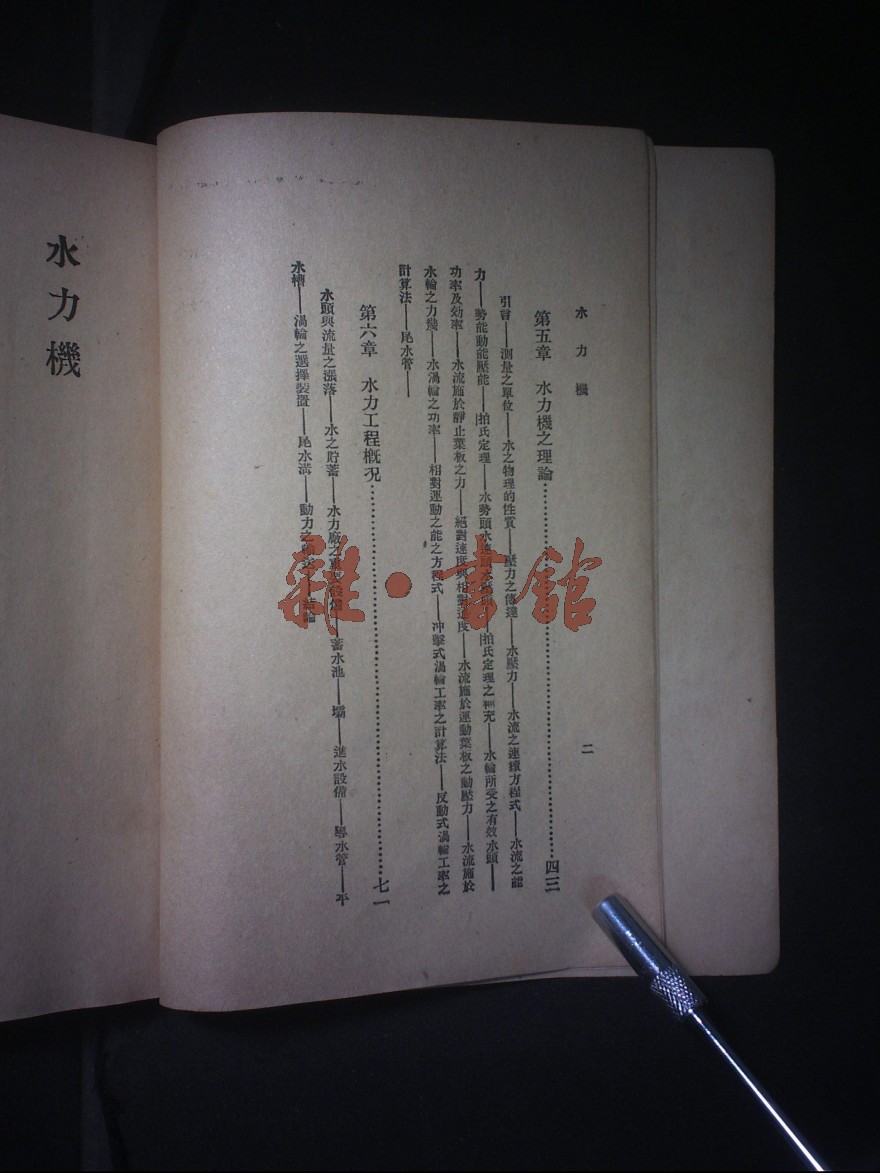 水力機
二
第五章　水力機之理論……四三
引言——測量之單位——水之物理的性質——壓力之傳達——水壓力——水流之連續方程式——水流之能
力——勢能動能壓能——拍氏定理——水勢頭水速頭水壓頭——拍氏定理之補充——水輪所受之有效水頭——
功率及効率——水流施於靜止葉板之力——絕對速度與相對速度——水流施於運動葉板之動壓力——水流施於
水輪之力幾——水渦輪之功率——相對運動之能之方程式——冲擊式渦輪工率之計算法——反動式渦輪工率之
計算法——尾水管——
第六章　水力工程概况……七一
水頭與流量之漲落——水之貯蓄——水力廠之重要設備——蓄水池——壩——進水設備——導水管——平
水槽——渦輪之選擇裝置——尾水溝——動力之輸送——結論
水力機
雜·書館